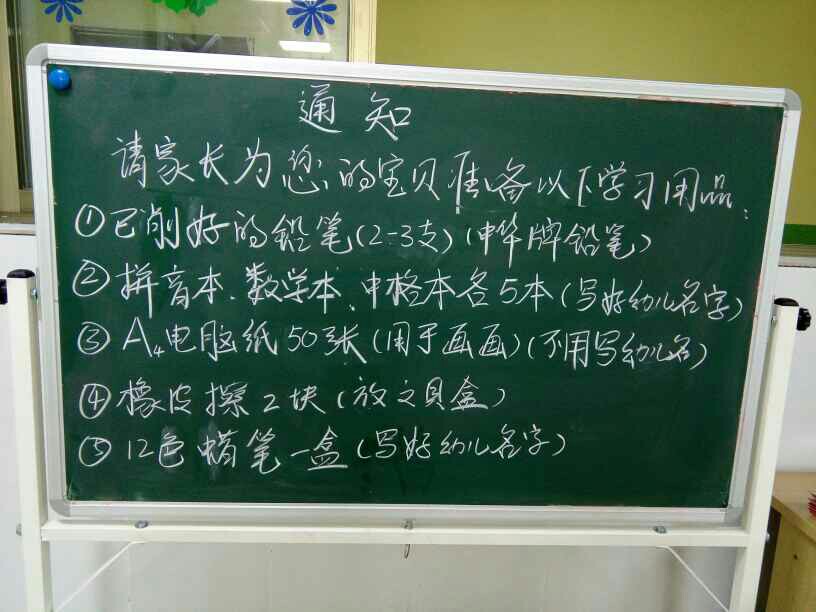 通知
请家长为您的宝贝准备以下学习用品:
①已削好的铅笔(2-3支)(中华牌铅笔)
②拼音本、数学本、中格本各5本(写好幼儿名字)
③A4电脑纸50张(用于画画)(不用写幼儿名)
④橡皮擦2块(放文具盒)
⑤12色蜡笔一盒(写好幼儿名字)